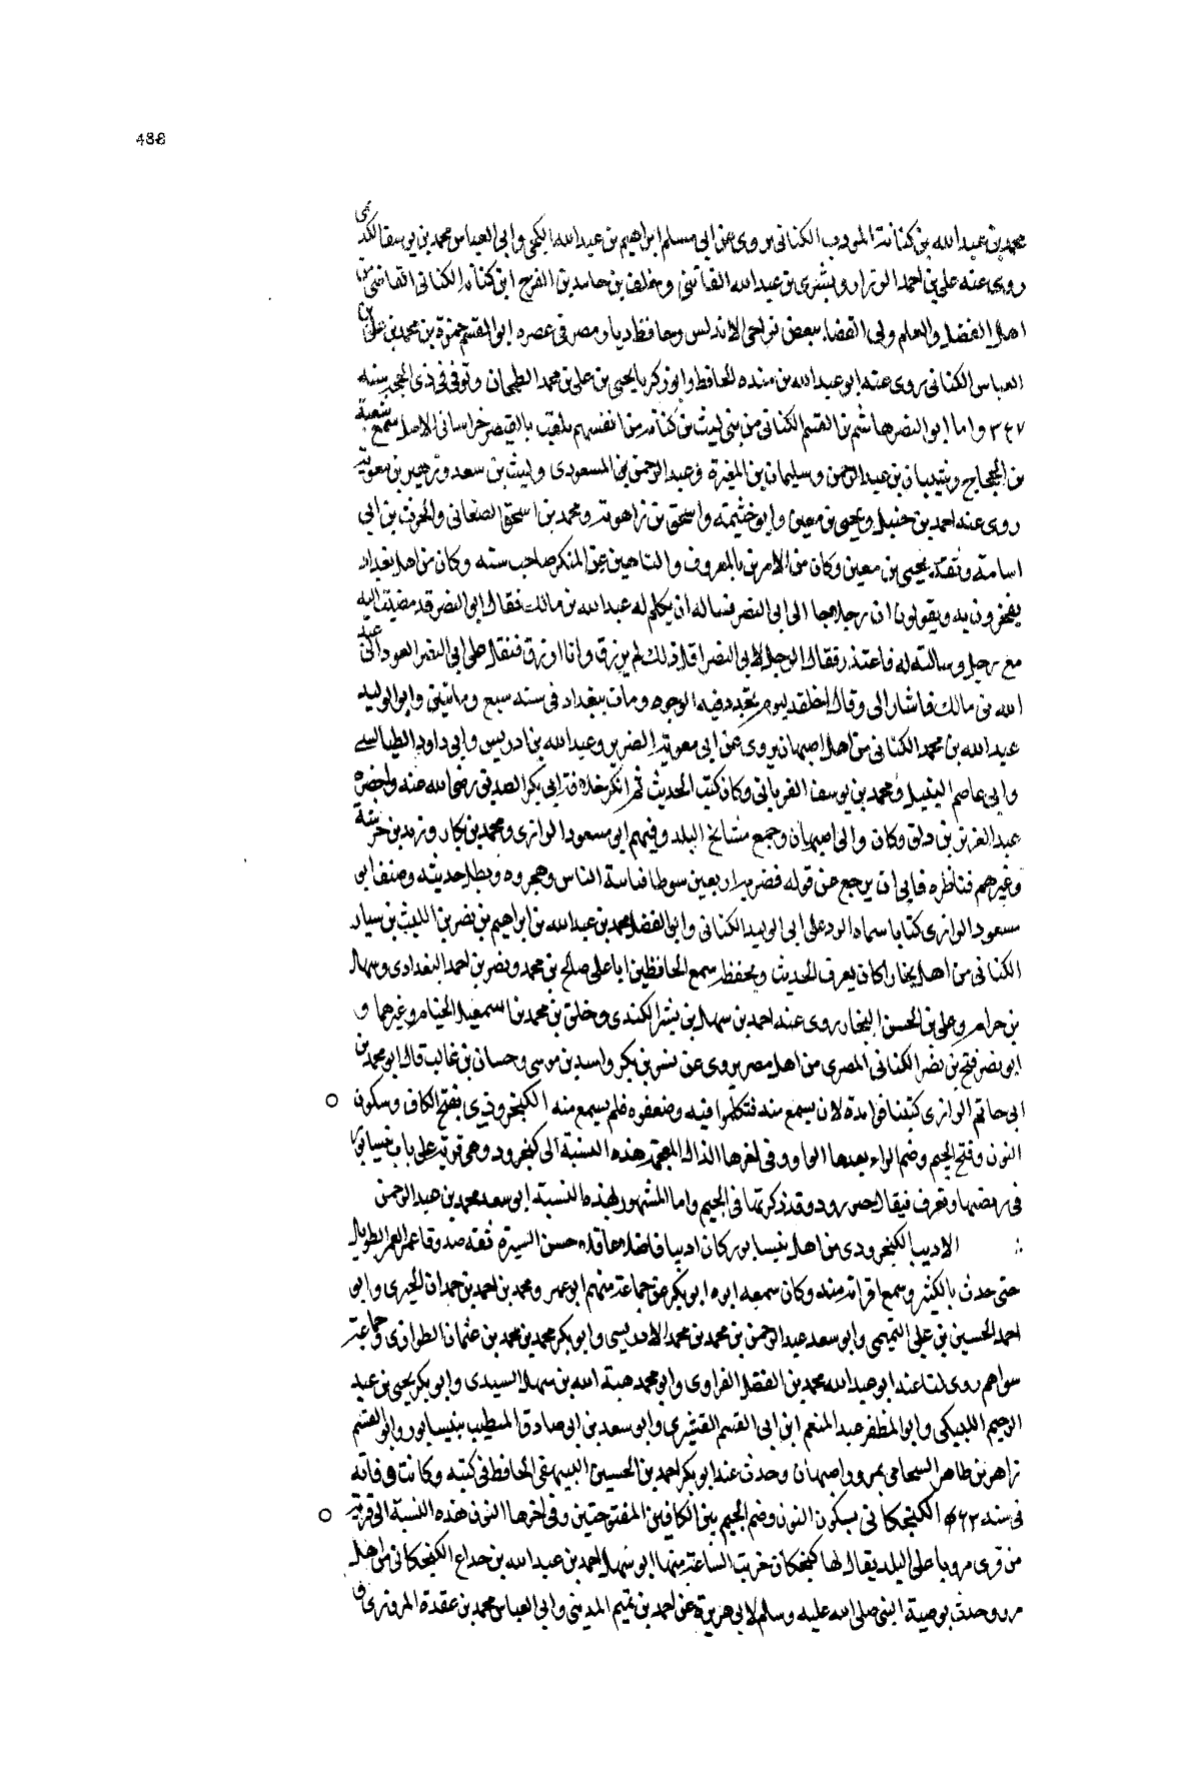 488
محمد بن عبد الله بن كنانة المودب الكنانى يروى عن ابى مسلم ابراهيم بن عبد الله الكجى وابى العباس محمد بن يوسف الكديمى
روى عنه على بن احمد الرزاز وبشرى بن عبد الله الفاتنى وخلف بن حامد بن الفرج ابن كنانه الكنانى القاضى من
اهل الفضل والعلم ولى القضا ببعض نواحى الاندلس وحافظ ديار مصر فى عصره ابو القسم حمزة بن محمد بن على بن
العباس الكنانى روى عنه ابو عبد الله بن منده الحافظ وابو زكريا يحيى بن على بن محمد الطحان وتوفى فى ذى الحجه سنه
٣٤٧ واما ابو النضر هاشم بن القسم الكنانى من بنى ليث بن كنانه من انفسهم يلقب بالقيصر خراسانى الاصل سمع شعبة
بن الحجاج وشيبان بن عبد الرحمن وسليمان بن المغيرة وعبد الرحمن بن المسعودى وليث بن سعد وزهير بن معوية
روى عنه احمد بن حنبل ويحيى بن معين وابو خثيمه واسحق بن راهويه ومحمد بن اسحق الصغانى والحرث بن ابى
اسامة وثقه يحيى بن معين وكان من الامرين بالمعروف والناهين عن المنكر صاحب سنه وكان من اهل بغداد
يفخرون به ويقولون ان رجلا جا الى ابى النضر فساله ان يكلم له عبد الله بن مالك فقال ابو النضر قد مضيت اليه
مع رجل وسالته له فاعتذر فقال الرجل لابى النضر اقل ذلك لم يرزق وانا ارزق فنقل على ابى النضر العود الى عبد
الله بن مالك فاشار الى وقال اخلقه ليوم تجدد فيه الوجوه ومات ببغداد فى سنه سبع وماتين وابو الوليد
عبد الله بن محمد الكنانى من اهل اصبهان يروى عن ابى معوية الضرير وعبد الله بن ادريس وابى داود الطيالسى
وابى عاصم النبيل ومحمد بن يوسف الفريابى وكان كتب الحديث ثم انكر خلافة ابى بكر الصديق رضى الله عنه واحضره
عبد العزيز بن دلف وكان والى اصبهان وجمع مشايخ البلد وفيهم ابو مسعود الرازى ومحمد بن بكار وزيد بن خرشة
وغيرهم فناظره فابى ان يرجع عن قوله فضربه اربعين سوطا فباسة الناس وهجروه وبطل حديثه وصنف ابو
مسعود الرازى كتابا سماه الرد على ابى الوليد الكنانى وابو الفضل محمد بن عبد الله بن ابراهيم بن نصر بن الليث بن سيار
الكنانى من اهل بخارا كان يعرف الحديث ويحفظ سمع الحافظين ابا على صالح بن محمد ونصر بن احمد البغدادى وسهل
بن حرام وعلى بن الحسن البخار روى عنه احمد بن سهل بن بشر الكندى وخلف بن محمد بن اسمعيل الخيام وغيرهما و
ابو نصر فتح بن نصر الكنانى المصرى من اهل مصر يروى عن بشر بن بكر واسد بن موسى وحسان بن غالب قال ابو محمد بن
ابى حاتم الرازى كتبنا فوائده لان يسمع منه فتكلموا فيه وضعفوه فلم يسمع منه الكنجروذى بفتح الكاف وسكون
النون وفتح الجيم وضم الراء بعدها الواو وفى اخرها الذال المعجمة هذه النسبة الى كنجرود وهى قرية على باب نيسابور
فى ربضها وتعرف فيقال جنزرود وقد ذكرتها فى الجيم واما المشهور بهذه النسبة ابو سعد محمد بن عبد الرحمن
الاديب الكنجرودى من اهل نيسابور كان اديبا فاضلا عاقلا حسن السيرة ثقه صدوقا عمر العمر الطويل
حتى حدث بالكثير وسمع اقرانه منه وكان سمعه ابوه ابو بكر من جماعة منهم ابو عمرو محمد بن احمد بن حمدان الحيرى وابو
احمد الحسين بن على التميمى وابو سعد عبد الرحمن بن محمد بن محمد الادريسى وابو بكر محمد بن محمد بن عثمان الطرازى وجماعة
سواهم روى لنا عنه ابو عبد الله محمد بن الفضل الفراوى وابو محمد هبة الله بن سهل السيدى وابو بكر يحيى بن عبد
الرحيم اللبيكى وابو المظفر عبد المنعم ابن ابى القسم القشيرى وابو سعد بن ابى صادق المتطبب بنيسابور وابو القسم
زاهر بن طاهر الشحامى بمرو واصبهان وحدث عنه ابو بكر احمد بن الحسين البيهقى الحافظ فى كتبه وكانت وفاته
فى سنه الكنجكانى بسكون النون وضم الجيم بين الكافين المفتوحتين وفى اخرها النون هذه النسبة الى قرية
من قرى مرو با على البلد يقال لها كنجكان خربت الساعة منها ابو سهل احمد بن عبد الله بن حداع الكنجكانى من اهل
مرو وحدث بوصية النبى صلى الله عليه وسلم لابى هريرة عن احمد بن تميم المدينى وابى العباس محمد بن عقدة المروزى